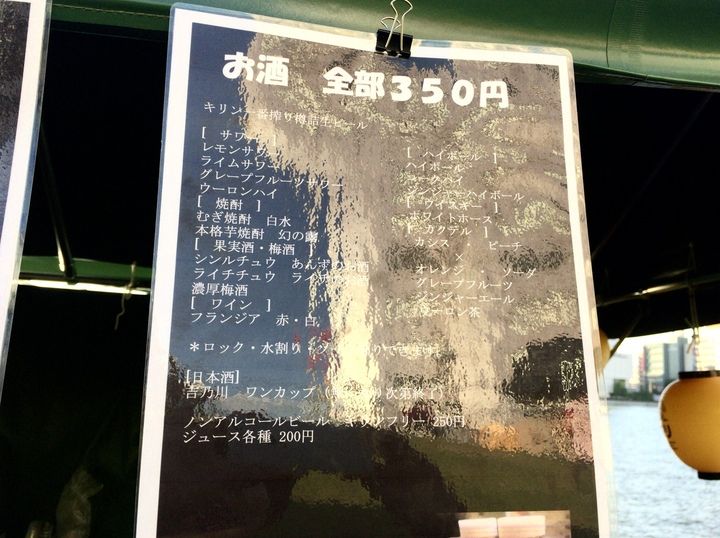 お酒 全部350円
キリン一番搾り樽詰生ビール
[ サワー ]
レモンサワー
ライムサワー
グレープフルーツサワー
ウーロンハイ
[ 焼酎 ]
むぎ焼酎 白水
本格芋焼酎 幻の露
[ 果実酒・梅酒 ]
シンルチュウ あんず
ライチチュウ ライチ
濃厚梅酒
[ ワイン ]
フランジア 赤・白
[ ハイボール ]
ハイボール
ジンジャーハイボール
[ ウイスキー ]
ホワイトホース
[ カクテル ]
カシス ・ ピーチ
×
オレンジ ・ ソーダ
グレープフルーツ
ジンジャーエール
ウーロン茶
*ロック・水割り・
[日本酒]
吉乃川 ワンカップ(
り次第終了)
ノンアルコールビール キリンフリー 250円
ジュース各種 200円